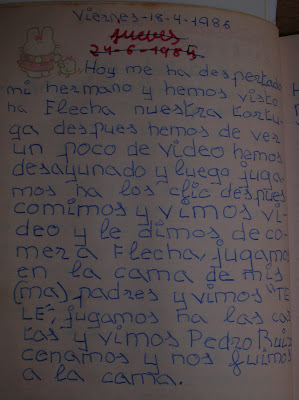 Viernes-18-4-1986
jueves
24-6-1985
Hoy me ha despertado
mi hermano y hemos visto
ha Flecha nuestra tortu-
ga despues hemos de ver
un poco de video hemos
desayunado y luego juga-
mos ha los clic despues
comimos y vimos vi-
deo y le dimos de co-
mer a Flecha, jugamos
en la cama de mis
(ma) padres y vimos "TE
LE" jugamos ha las car
tas y vimos Pedro Ruiz
cenamos y nos fuimos
a la cama.